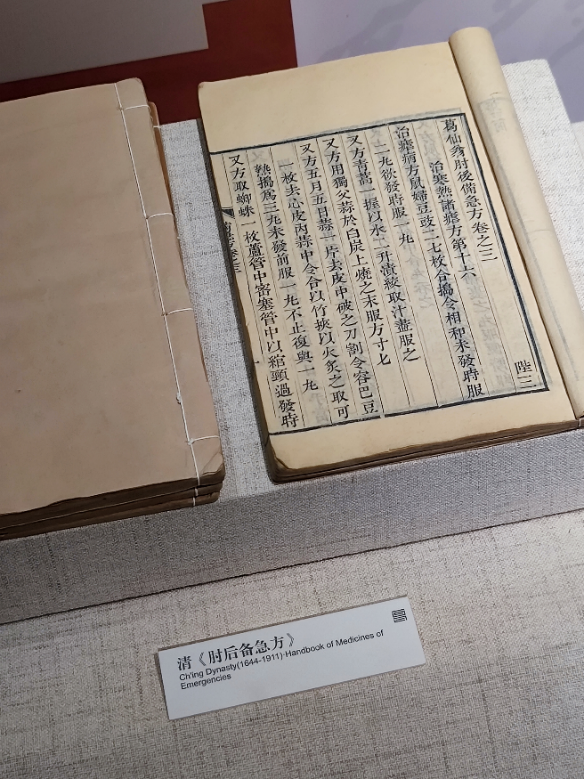 葛仙翁肘後備急方卷之三
治寒熱諸瘧方第十六
治瘧病方鼠婦豆豉二七枚合搗令相和未發時服
二丸欲發時服一丸
又方青蒿一握以水二升漬絞取汁盡服之
又方用獨父蒜於白炭上燒之末服方寸七
又方五月五日蒜一片去皮中破之刀割令容巴豆
一枚去心皮內蒜中令合以竹挾以火炙之取可
熱搗為三丸未發前服一丸不止復與一丸
又方取蜘蛛一枚蘆管中密塞管中以綰頸過發時
陛三
卷三
清《肘后备急方》
Ch'ing Dynasty(1644-1911)·Handbook of Medicines of
Emergencies